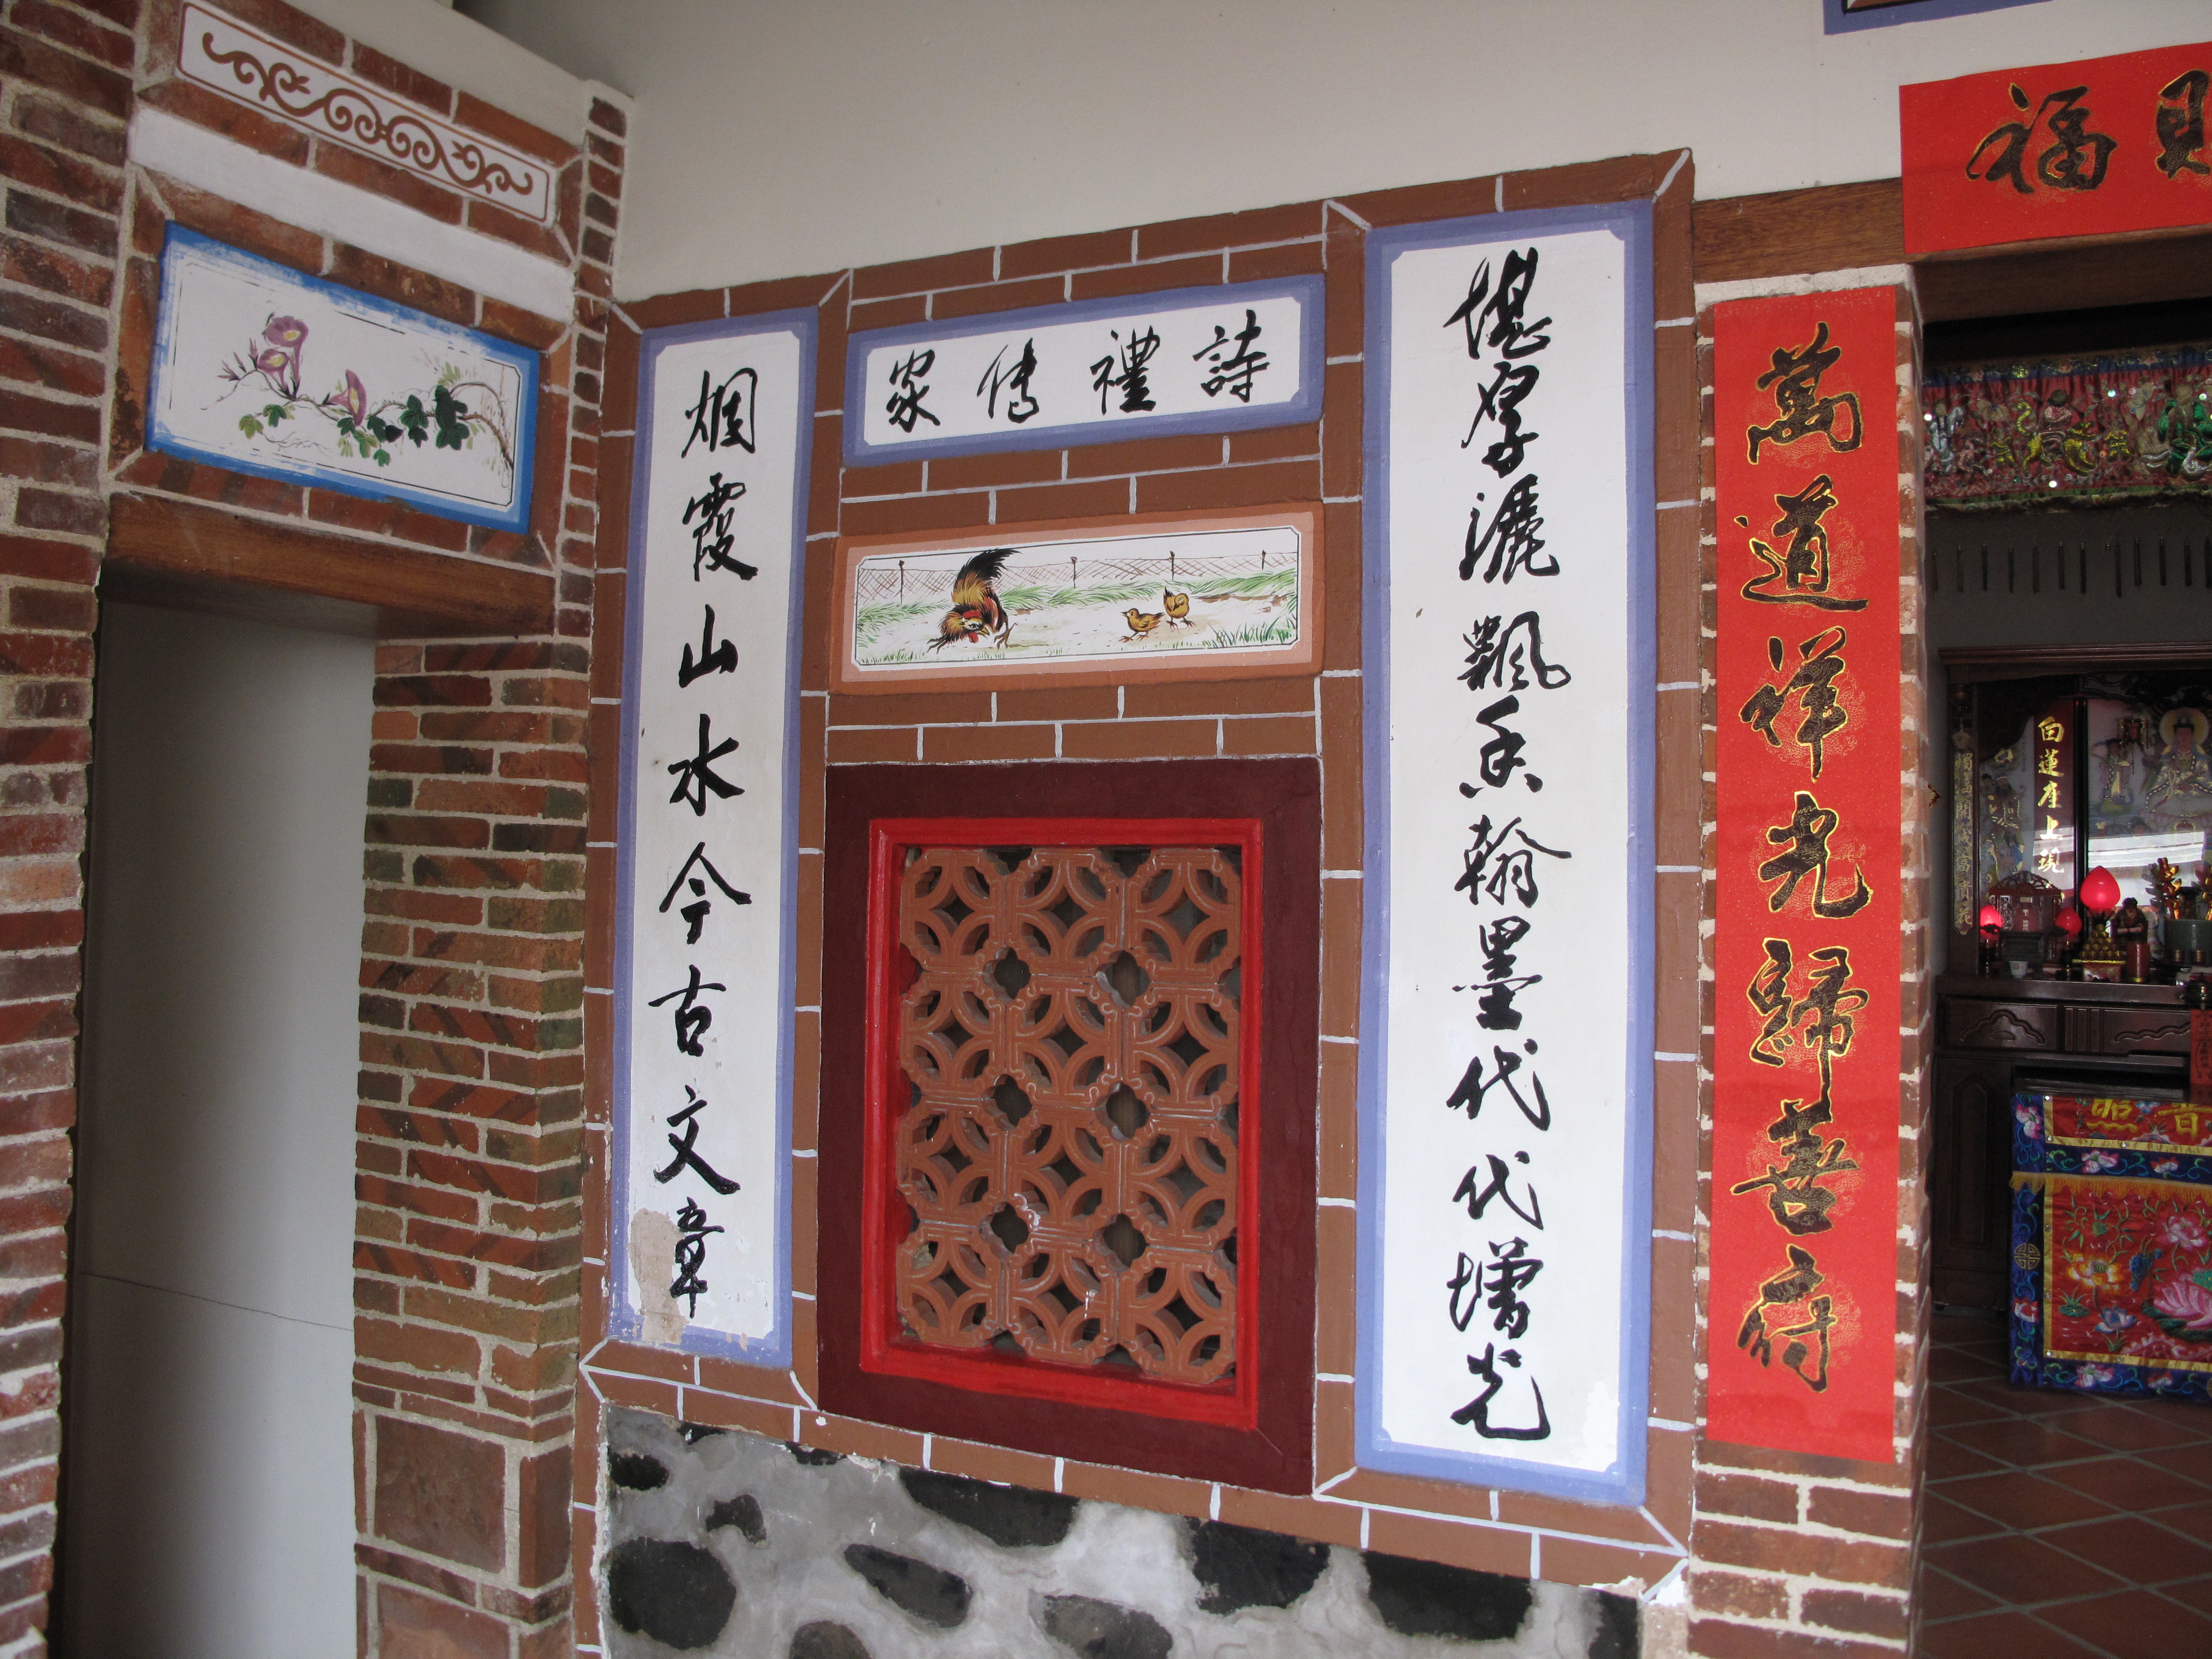 福
萬道祥光歸善府
堪灑飄香翰墨代代增光
詩禮傳家
烟霞山水今古文章
白蓮座上現